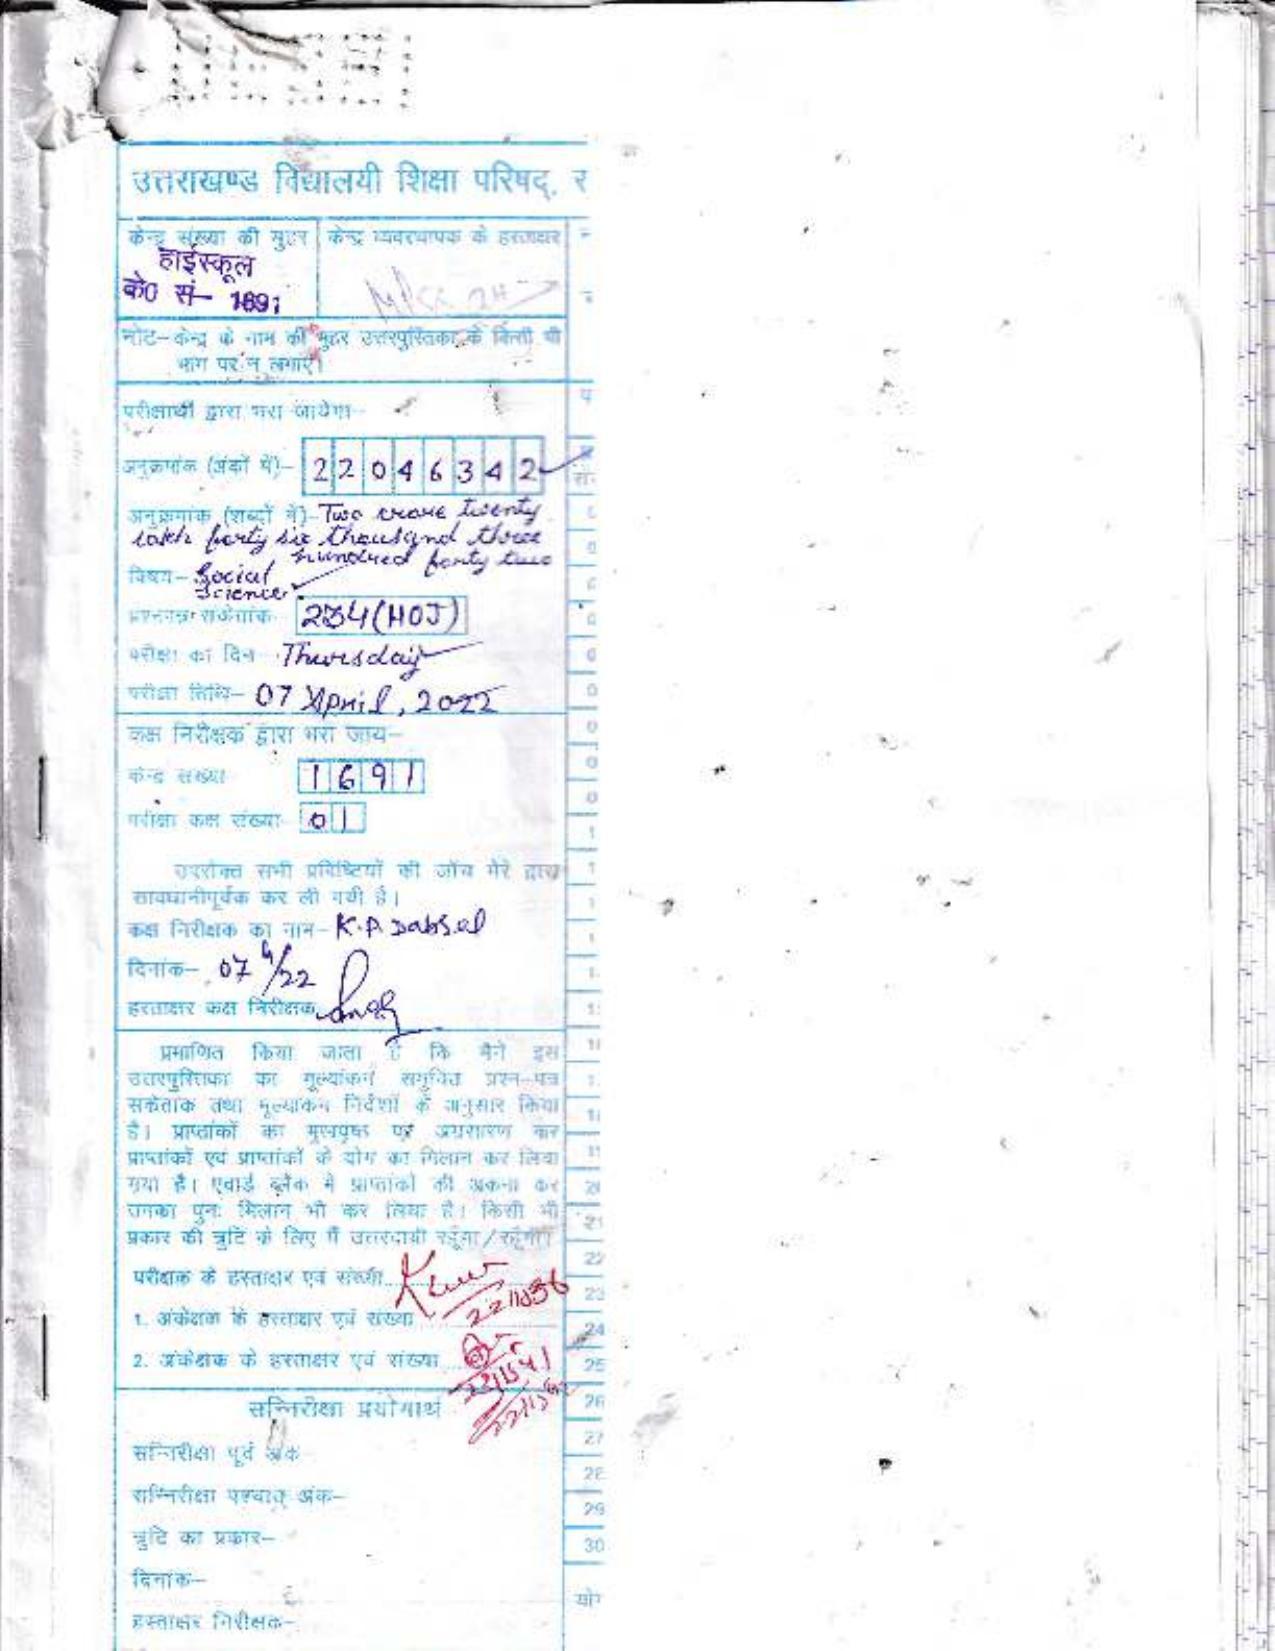 उत्तराखण्ड विद्यालयी शिक्षा परिषद्, र
केन्द्र संख्या की मुहर
केन्द्र व्यवस्थापक के हस्ताक्षर
हाईस्कूल
के0 सं- 1691
नोट-केन्द्र के नाम की मुहर उत्तरपुस्तिका के किसी भी
भाग पर न लगाएँ।
परीक्षार्थी द्वारा भरा जायेगा-
अनुक्रमांक (अंकों में)- 22046342
अनुक्रमांक (शब्दों में)- Two crore twenty
lakh forty six thousand three
hundred forty two
विषय- Social
Science
प्रश्नपत्र संकेतांक- 234(HOJ)
परीक्षा का दिन- Thursday
परीक्षा तिथि- 07 April, 2022
कक्ष निरीक्षक द्वारा भरा जाय-
केन्द्र संख्या 1691
परीक्षा कक्ष संख्या- 01
उपरोक्त सभी प्रविष्टियों की जाँच मेरे द्वारा
सावधानीपूर्वक कर ली गयी है।
कक्ष निरीक्षक का नाम- K.P. Dabsal
दिनांक- 07/4/22
हस्ताक्षर कक्ष निरीक्षक
प्रमाणित किया जाता है कि मैंने इस
उत्तरपुस्तिका का मूल्यांकन समुचित प्रश्न-पत्र
संकेतांक तथा मूल्यांकन निर्देशों के अनुसार किया
है। प्राप्तांकों का मुखपृष्ठ पर अग्रसारण कर
प्राप्तांकों एवं प्राप्तांकों के योग का मिलान कर लिया
गया है। एवार्ड ब्लैंक में प्राप्तांकों की अंकना कर
उनका पुनः मिलान भी कर लिया है। किसी भी
प्रकार की त्रुटि के लिए मैं उत्तरदायी रहूँगा/रहूँगी।
परीक्षक के हस्ताक्षर एवं संख्या
2211036
1. अंकेक्षक के हस्ताक्षर एवं संख्या
2. अंकेक्षक के हस्ताक्षर एवं संख्या
2211541
सन्निरीक्षा प्रयोगार्थ
सन्निरीक्षा पूर्व अंक-
सन्निरीक्षा पश्चात् अंक-
त्रुटि का प्रकार-
दिनांक-
हस्ताक्षर निरीक्षक-
22
23
24
25
26
27
28
29
30